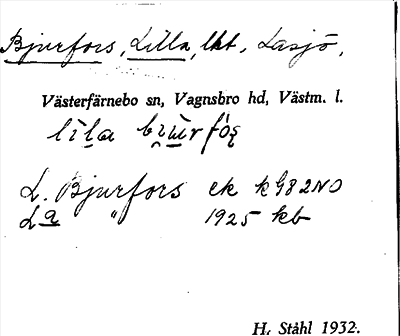 Bjurfors, Lilla, lht, Lasjö,
Västerfärnebo sn, Vagnsbro hd, Västm. l.
L. Bjurfors ek k 982 NO
La " 1925 kb
H. Ståhl 1932.